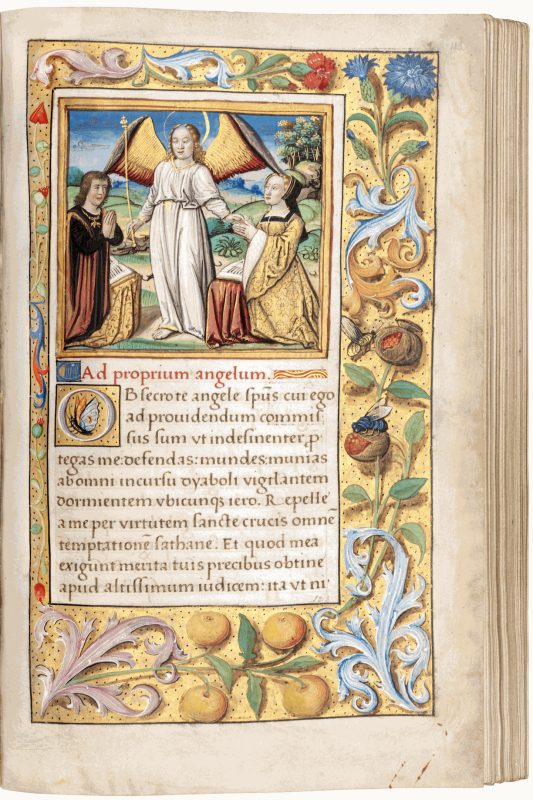 Ad proprium angelum.
OB secro te angele spūs cui ego
ad prouidendum commiſ
ſus ſum vt indeſinenter p̄
tegas me: defendas: mundes: munias
ab omni incurſu dyaboli vigilantem
dormientem vbicunqꝫ iero. Repelle
a me per virtutem ſancte crucis omnē
temptationē ſathane. Et quod mea
exigunt merita tuis precibus obtine
apud altiſſimum iudicem: ita vt ni